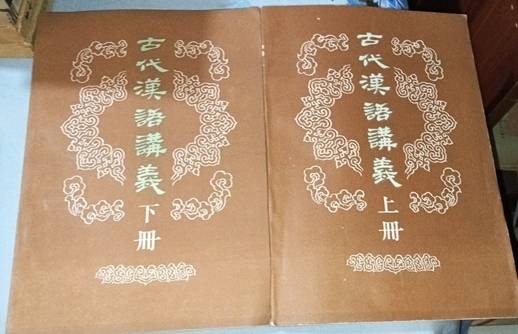 古代漢語講義
上冊
古代漢語講義
下冊